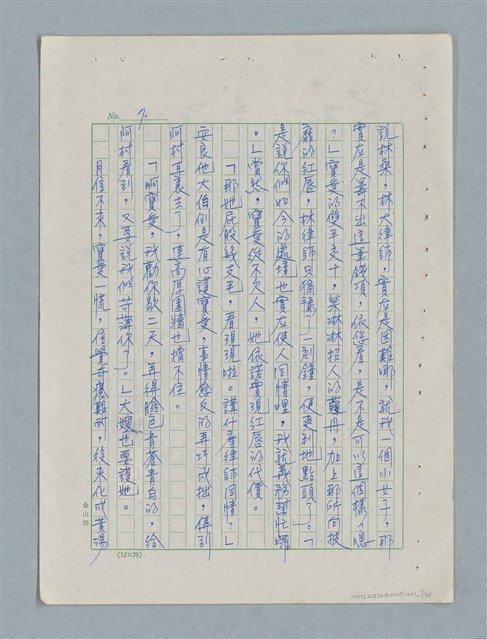 No. 7.
說林桑，林大律師，實在是困難哪，就我一個小女子，那
實在是籌不出這筆錢項，依您看，是不是可以這個樣？嗯
？」寶愛的雙手支十，笑淋淋拉人的，加上那所向披
靡的紅唇，林律師只猶豫了一刻鐘，便爽利地點頭了。「
是說你們如今的處境也實在使人同情哩，我就義務幫忙囉
。」當然，寶愛從不欠人，她依諾實現紅唇的代價。
「那她屁股錢支王，看現現啦。講什麼律師同情？」
安良他大伯倒是有心護寶愛，事情愈反的弄巧成拙，傳到
阿村耳裏去了，連高厚圍牆也擋不住。
「啊寶愛，我勸你歇二天，再緝臉色青蒼青白的，給
阿村看到，又要說我們苛薄你了。」大嫂也要護她。
月信不來，寶愛一慌，但覺奇癢難耐，後來化成黃湯
金山牌
(12×25)